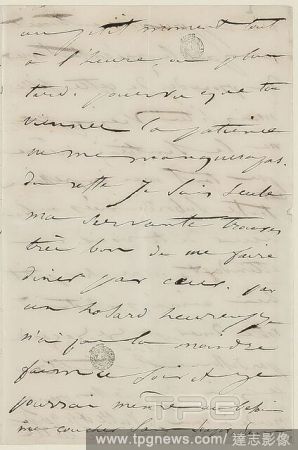 un p'tit moment tout
à l'heure, ou plus
tard. pourvu que tu
viennes la patience
ne me manquera pas.
du reste je suis seule
ma servante trouve
très bon de me faire
diner par cœur. par
un hasard heureux je
n'ai pas la moindre
faim ce soir et je
pourrai même au besoin
me coucher sans
TPG
www.tpgnews.com/達志影像